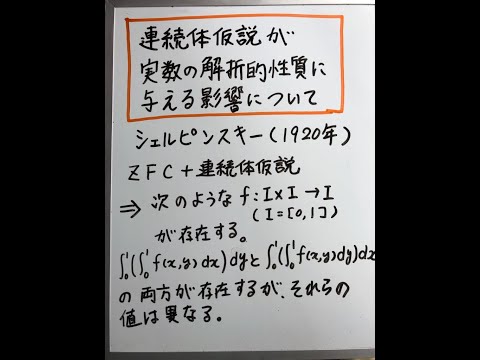 連続体仮説が
実数の解析的性質に
与える影響について
シェルピンスキー(1920年)
ZFC+連続体仮説
⇒ 次のような f:I×I→I
(I=[0,1])
が存在する。
∫₀¹(∫₀¹f(x,y)dx)dyと∫₀¹(∫₀¹f(x,y)dy)dx
の両方が存在するが、それらの
値は異なる。